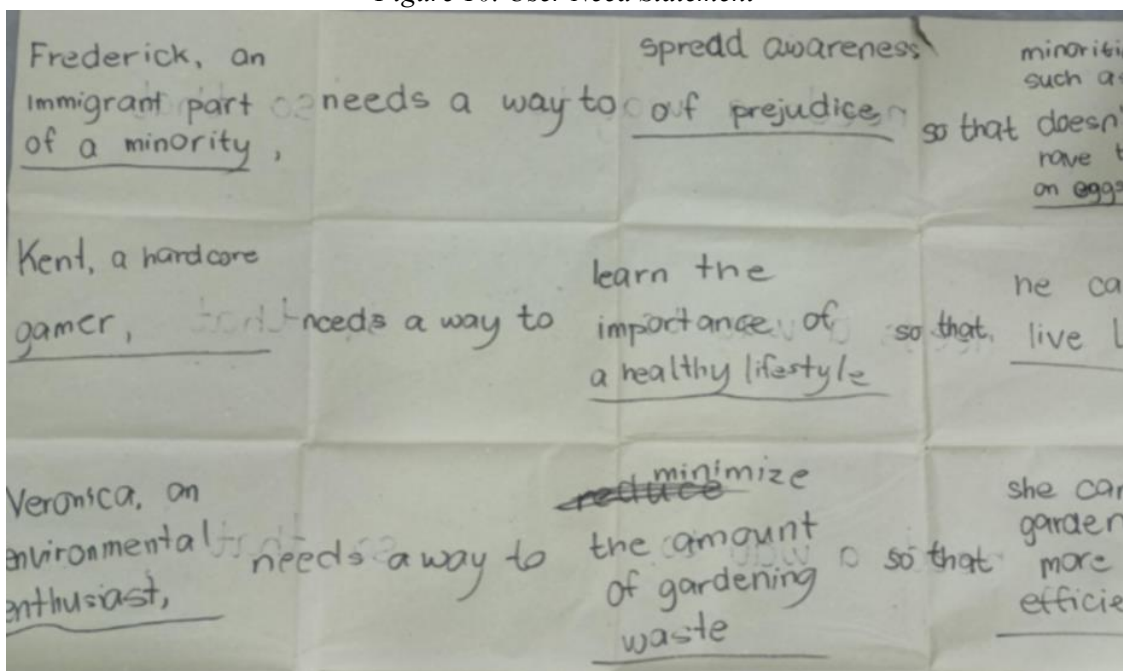 User Need Statement
Frederick, an
immigrant part
of a minority,
needs a way to
spread awareness
of prejudice
so that
minoriti
such a
doesn'
have t
on eggs
Kent, a hardcore
gamer,
needs a way to
learn the
importance of
a healthy lifestyle
so that
he ca
live
Veronica, an
environmental
enthusiast,
needs a way to
minimize
the amount
of gardening
waste
so that
she can
garden
more
efficie